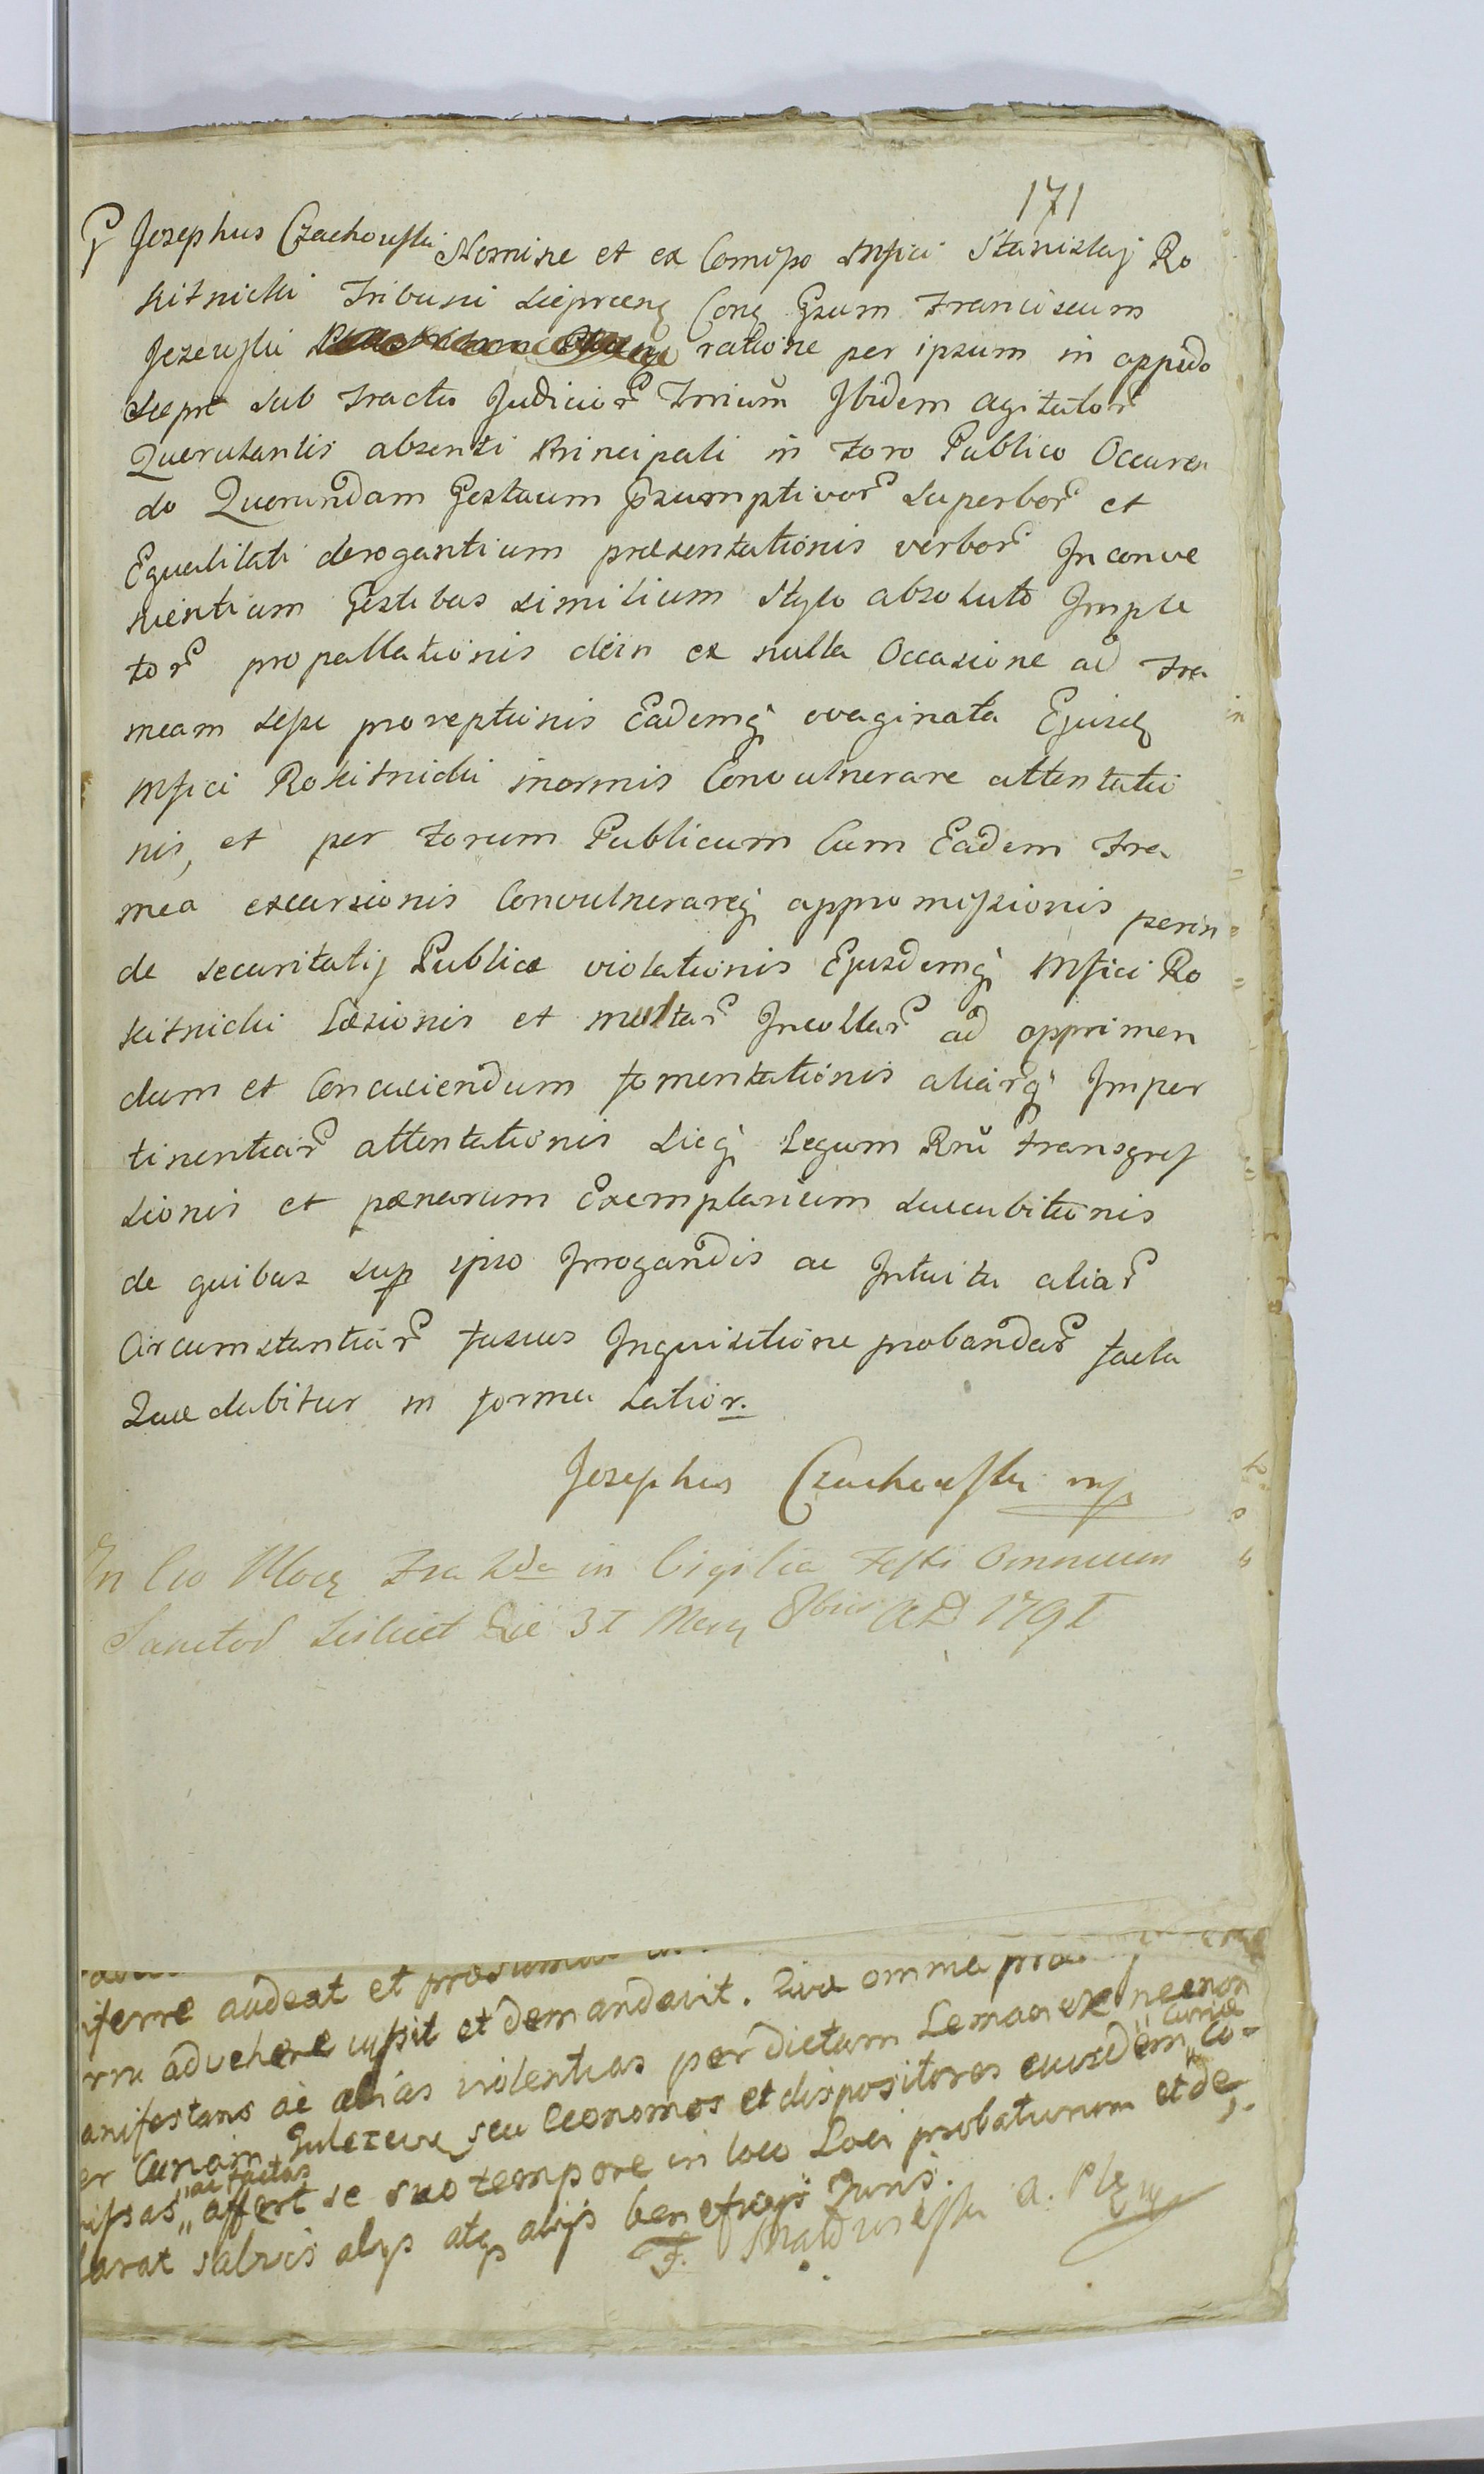 171
G Josephus Czachowski Nomine et ex Comiſso Mſici Stanislaj Ro
kitnicki Tribuni Sieprcen Con Gsum Franciscum
Jezewski ratione per ipsum in oppido
Siepre sub tractu Judicior Trrium Ibidem agitator
Querulantis absenti Principali in Foro Publico Occuren
do Quorundam Gestuum Præsumptivor superbor et
Equalitati derogantium præsentationis verbor Inconve
nientium Gestibus similium Stylo absoluto Imple
tor propallationis dein ex nulla Occasione ad Fra
meam sese proreptionis Eademq evaginata Ejusd
Mſici Rokitnicki inormis Convulnerare attentatio
nis, et per Forum Publicum Cum Eadem Fra
mea excursionis Convulnerareq appromiſsionis perin
de securitatis Publicæ violationis Ejusdemq Mſici Ro
kitnicki Læsionis et multar Incollar ad opprimen
dum et Concuciendum fomentationis aliarq Imper
tinentiar attentationis Sicq Legum Rni transgreſ
sionis et pænarum Exemplarium succubitionis
de quibus sup ipso Irrogandis ac Intuitu aliar
Circumstantiar fusius Inquisitione probandar facta
Quæ dabitur in forma Latior.
Josephus Czachowski mp
In Cro Ploc Fra 2da in Vigilia Festi Omnium
Sanctor Scilicet Die 31 Mens 8bris AD 1791
ferre audeat et præsumat
advehere iuſsit et demandavit. Quæ omnia
anifestans ac alias violentias per dictum Lemanek necnon
Curiæ
er Curiam seu Œconomos et dispositores eiusdem „ Co-
ac factas
iſsas „ affert se suo tempore in loco Loci probaturum et de-
larat salvis alys atq alijs beneficijs Juris.
F.